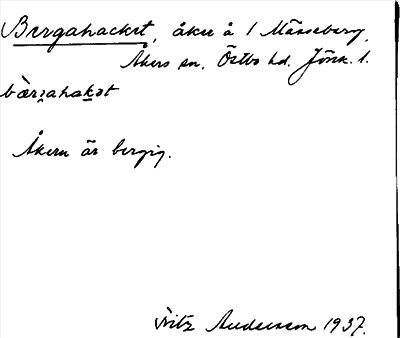 Bergahacket, åker å 1 Mässeberg,
Åkers sn. Östbo hd. Jönk. l.
bærgahakət
Åkern är bergig.
Fritz Andersson 1937.